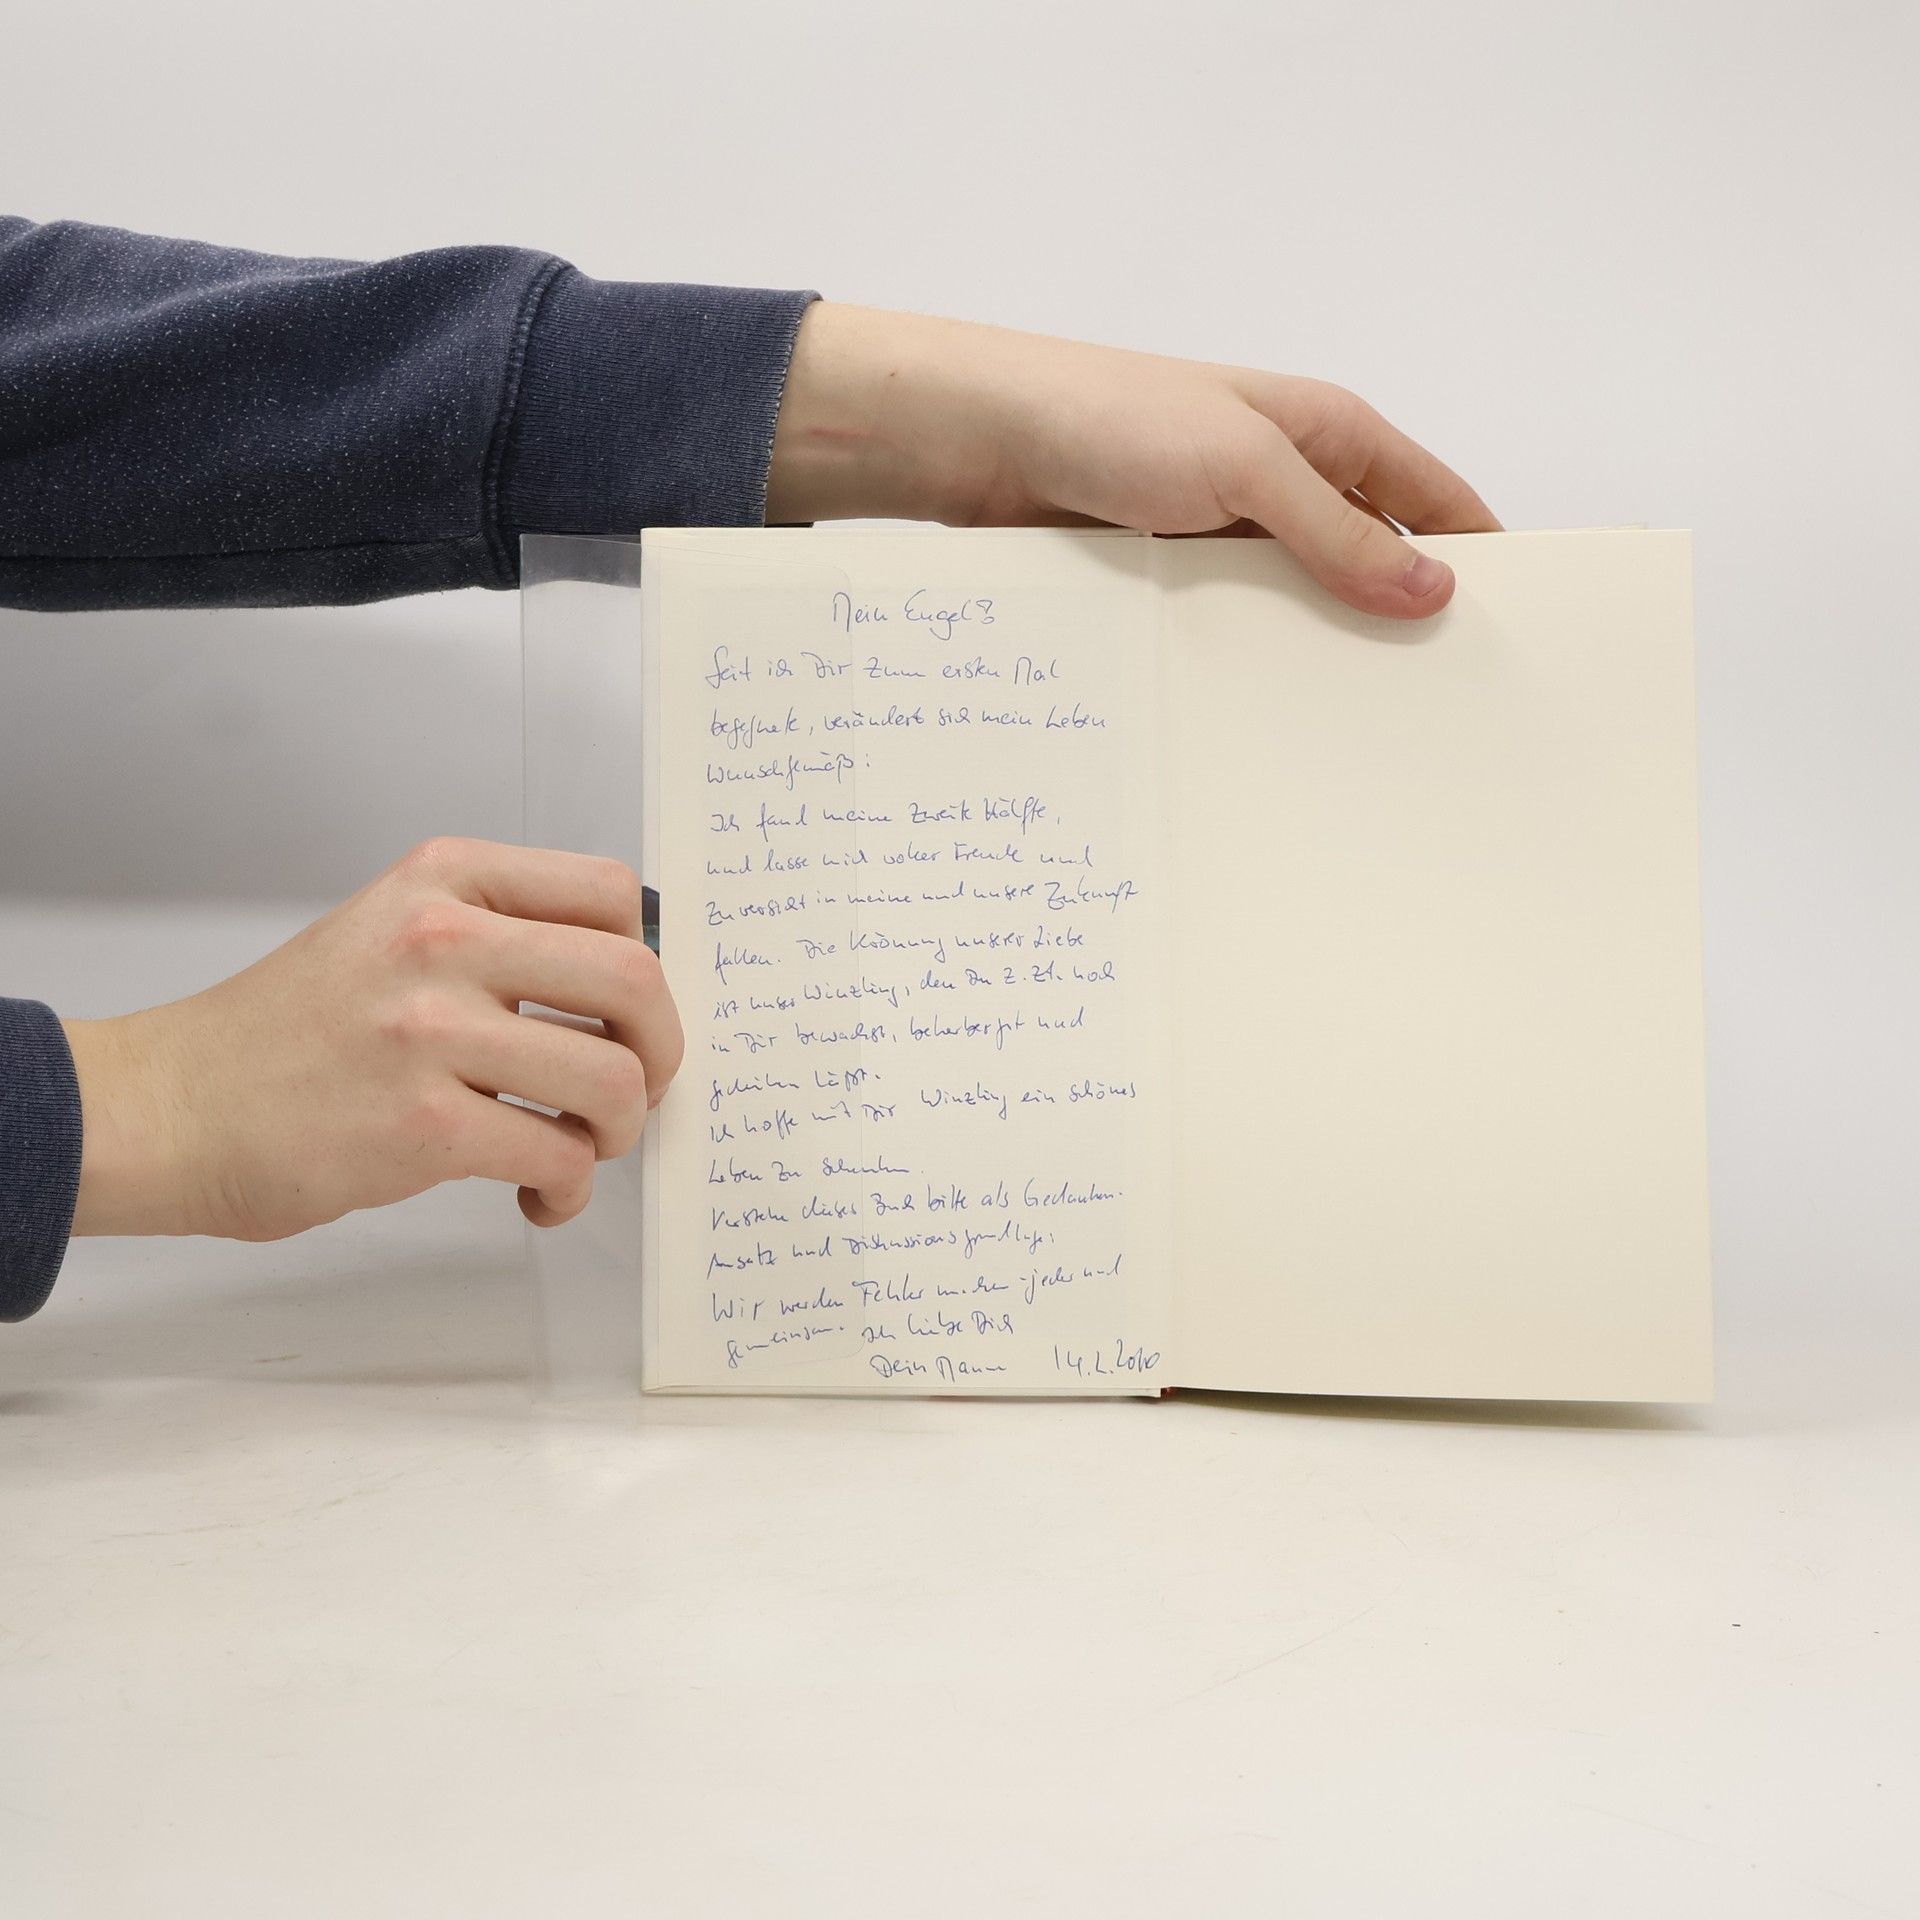 Mein Engel!
Seit ich Dir zum ersten Mal
begegnete, verändert sich mein Leben
Wunschgemäß:
Ich fand meine zweite Hälfte,
und lasse mich voller Freude und
Zuversicht in meine und unsere Zukunft
fallen. Die Krönung unserer Liebe
ist unser Winzling, den Du z. Zt. noch
in Dir bewachst, beherbergst und
gedeihen läßt.
Ich hoffe mit Dir Winzling ein schönes
Leben zu schenken.
Verstehe dieses Buch bitte als Gedanken-
Ansatz und Diskussionsgrundlage;
Wir werden Fehler machen - jeder und
gemeinsam. Ich liebe Dich
Dein Mann 14.2.2010